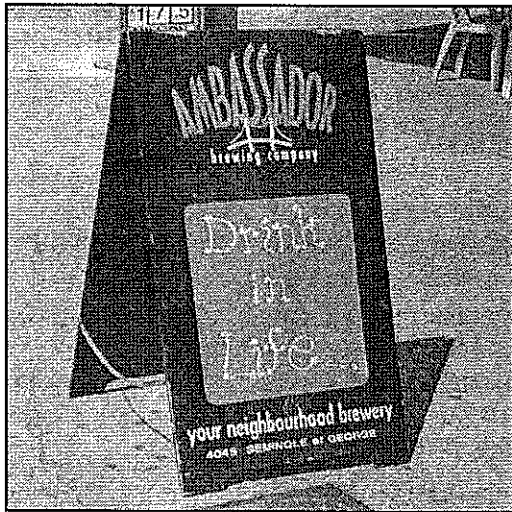 AMBASSADOR
brewing company
Drink
in
Life...
your neighbourhood brewery
4045 SEMINOLE at GEORGE